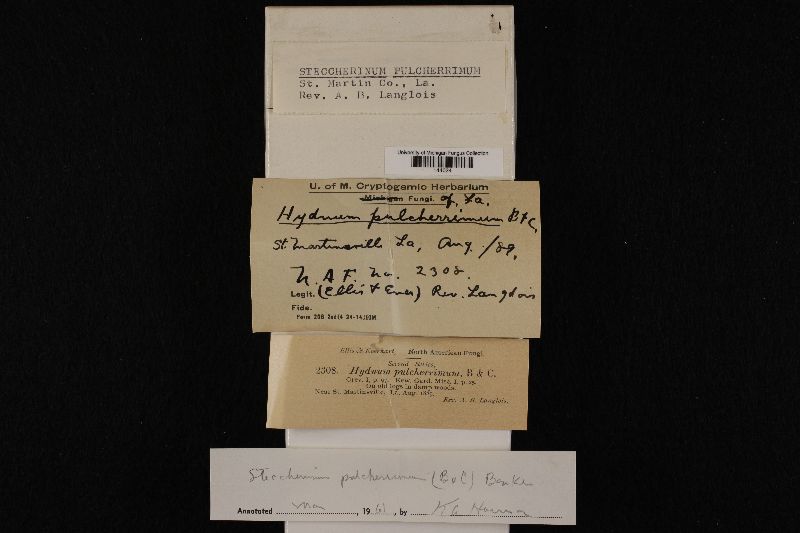 STECCHERINUM PULCHERRIMUM
St. Martin Co., La.
Rev. A. B. Langlois
University of Michigan Fungus Collection
U. of M. Cryptogamic Herbarium
Michigan Fungi. of La.
Hydnum pulcherrimum B & C,
St. Martinsville La, Aug. /89,
N. A F. no. 2308.
Legit. (Ellis & Ever) Rev. Langlois
Fide.
Ellis & Everhart, North American Fungi.
Second Series.
2308. Hydnum pulcherrimum, B & C.
Grev. I, p. 97.
On old logs in damp woods.
Near St. Martinsville, La., Aug. 1889.
Rev. A. B. Langlois.
Steccherinum pulcherrimum (B & C) Banker
Annotated , 19 61, by